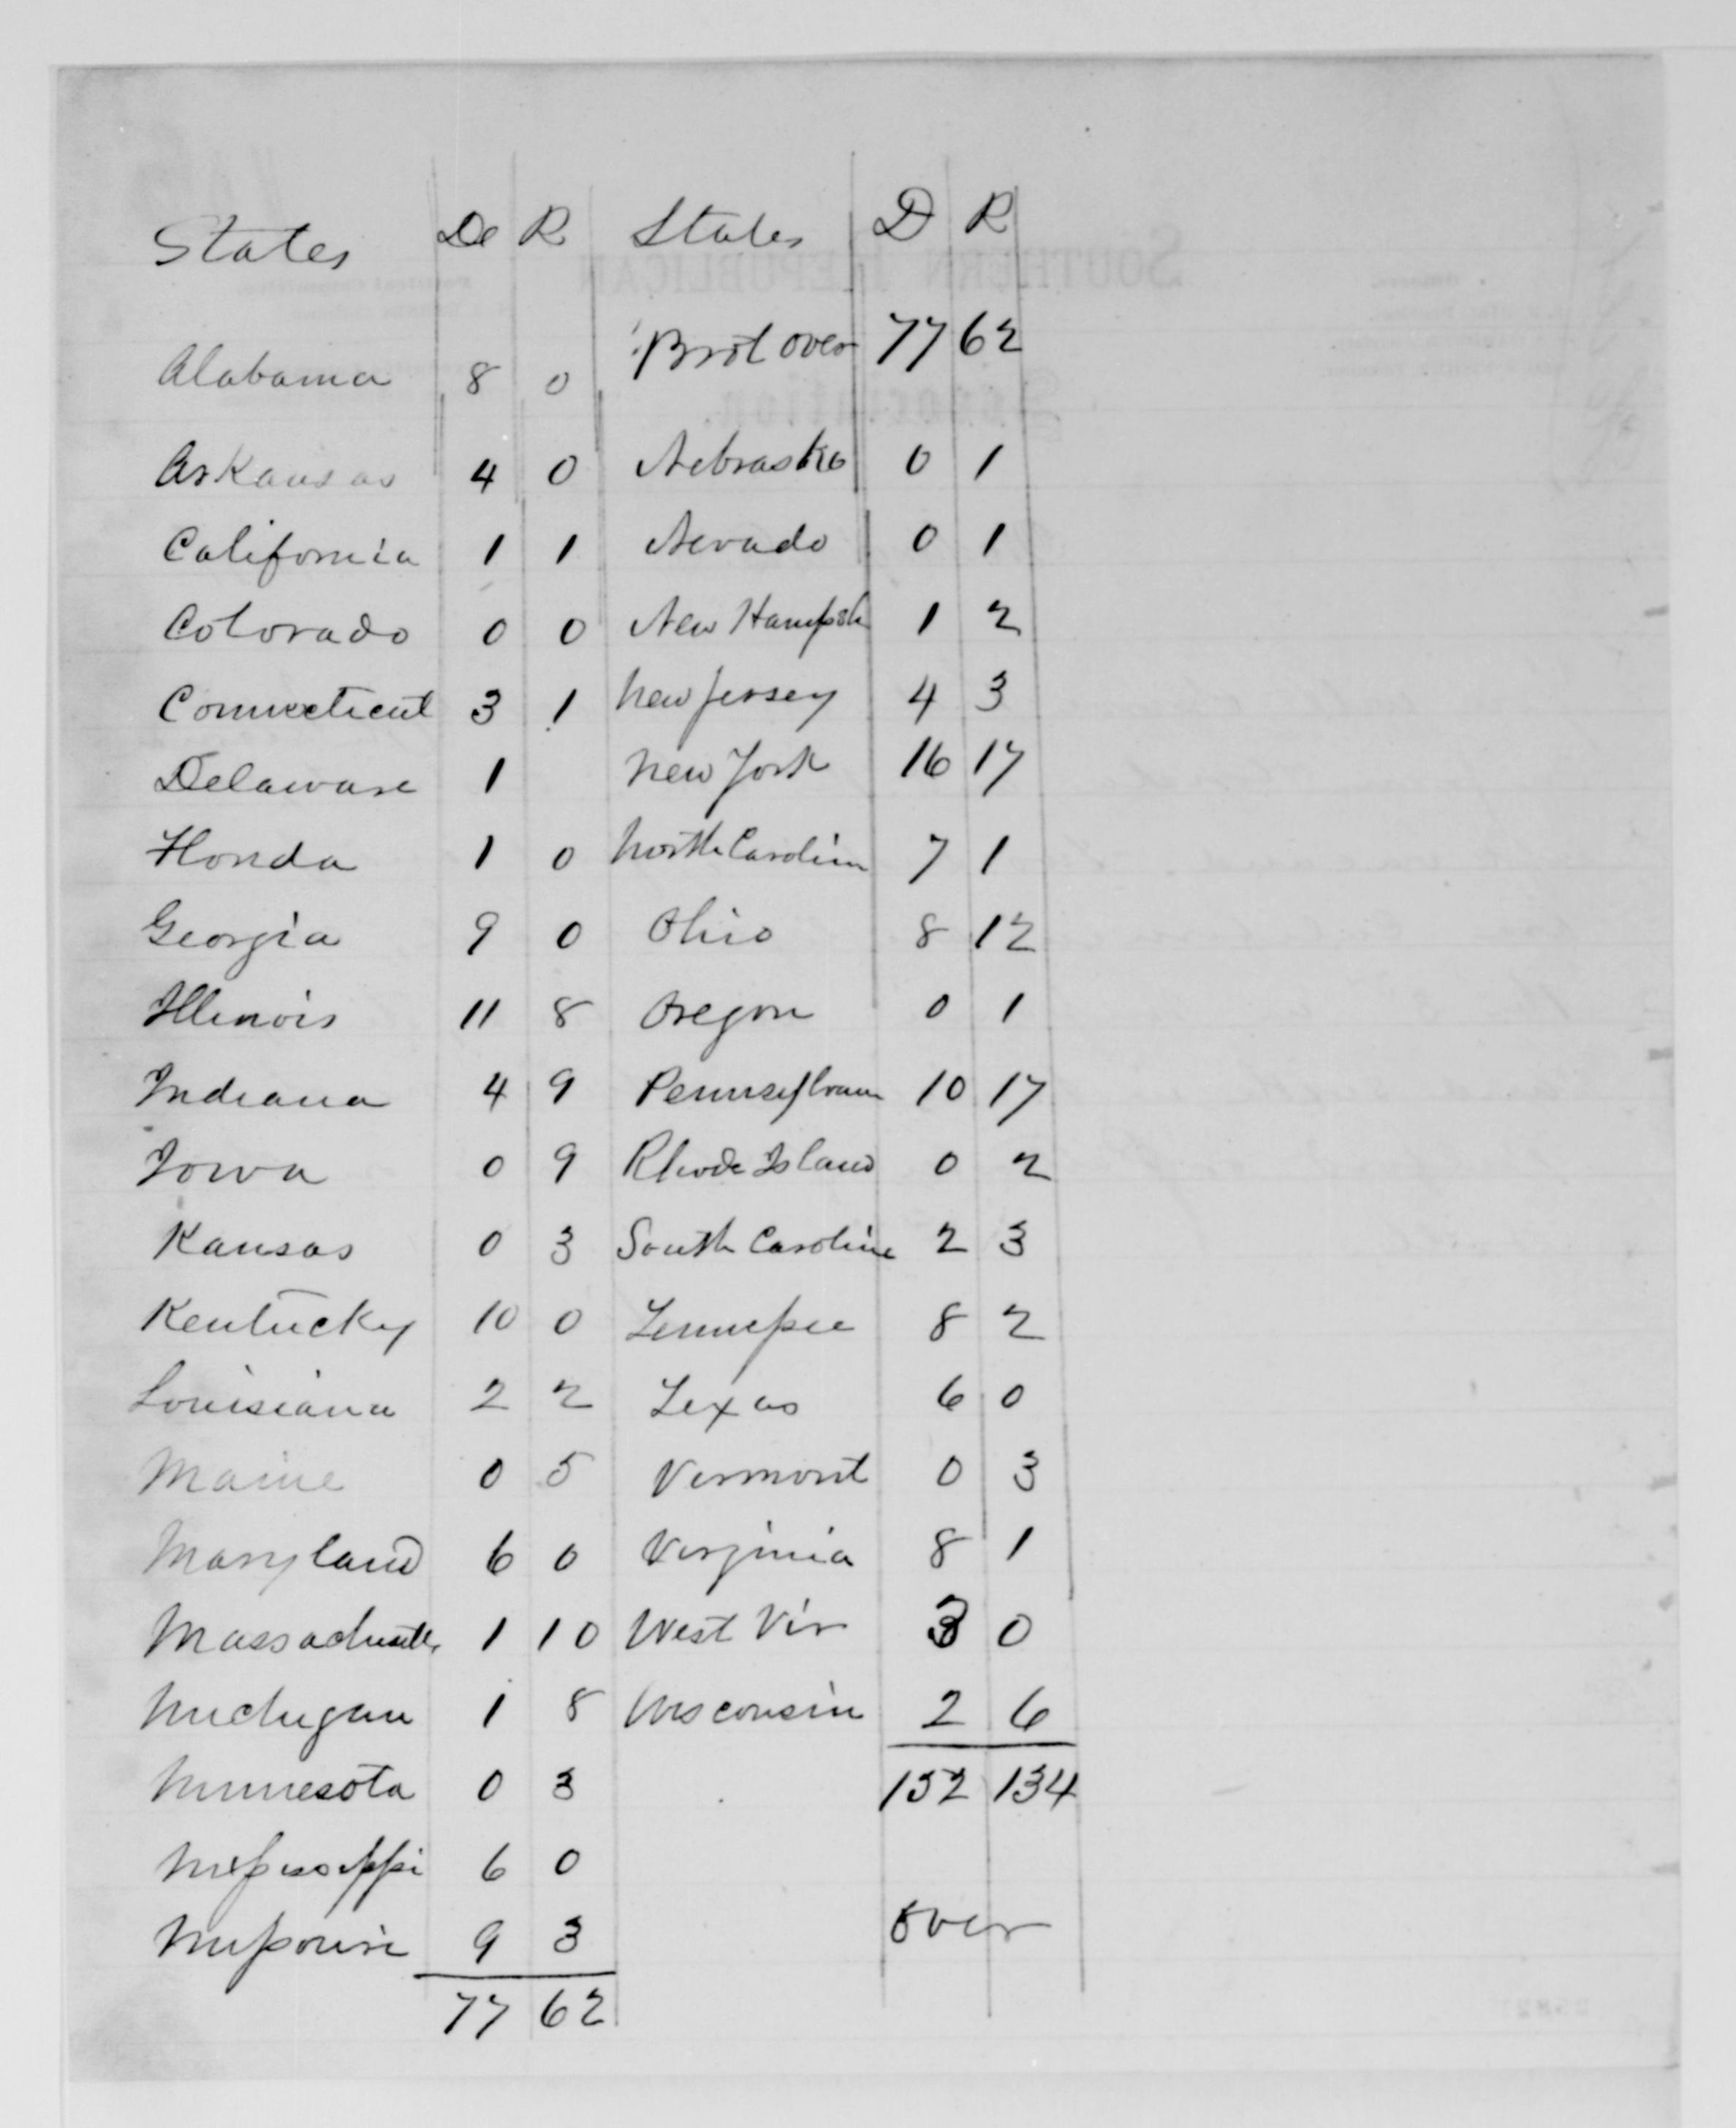 States De R States D R
Brot over 77 62
Alabama 8 0
Arkansas 4 0 Nebraska 0 1
California 1 1 Nevada 0 1
Colorado 0 0 New Hampsh 1 2
Connecticut 3 1 New Jersey 4 3
Delaware 1 New York 16 17
Florida 1 0 North Carolina 7 1
Georgia 9 0 Ohio 8 12
Illinois 11 8 Oregon 0 1
Indiana 4 9 Pennsylvan 10 17
Iowa 0 9 Rhode Island 0 2
Kansas 0 3 South Carolina 2 3
Kentucky 10 0 Tennessee 8 2
Louisiana 2 2 Texas 6 0
Maine 0 5 Vermont 0 3
Maryland 6 0 Virginia 8 1
Massachusetts 1 10 West Vir 3 0
Michigan 1 8 Wisconsin 2 6
Minnesota 0 3 152 134
Mississippi 6 0
Missouri 9 3 over
77 62